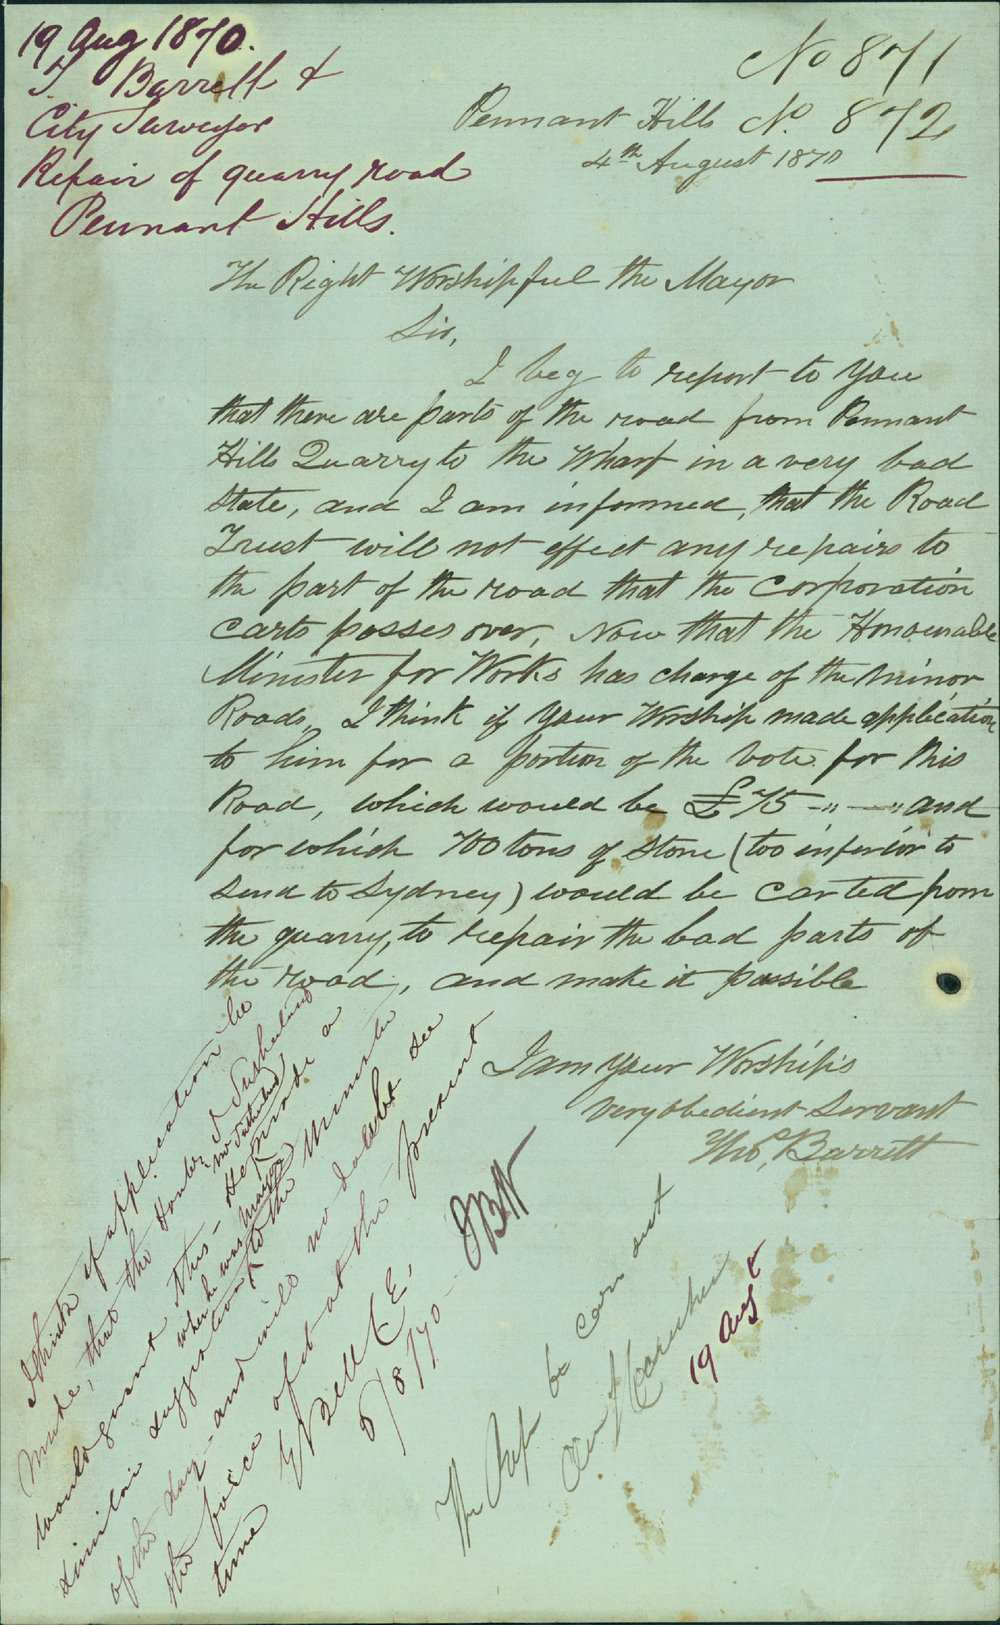 19 Aug 1870.
T. Barrett &
City Surveyor
Repair of quarry road
Pennant Hills.
No 871
No. 872
Pennant Hills
4th August 1870
The Right Worshipful the Mayor
Sir,
I beg to report to you
that there are parts of the road from Pennant
Hills Quarry to the Wharf in a very bad
state, and I am informed, that the Road
Trust will not effect any repairs to
the part of the road that the Corporation
Carts passes over, Now that the Honourable
Minister for Works has charge of the minor
Roads, I think if your Worship made application
to him for a portion of the vote for this
Road, which would be £75 -"-" and
for which 700 tons of stone (too inferior to
send to Sydney) would be carted from
the quarry, to repair the bad parts of
the road, and make it possible
I am your Worship's
very obedient Servant
Thos. Barrett
I think if application be
made, that the Honble J Sutherland
would grant this - He made a
Mr Sutherland
when he was Mayor
similar suggestion to the Minister
of the day and will no doubt see
the force of it at the present
time
E Bell C E.
5/8/70
The Refn be carr out
19 Aug t